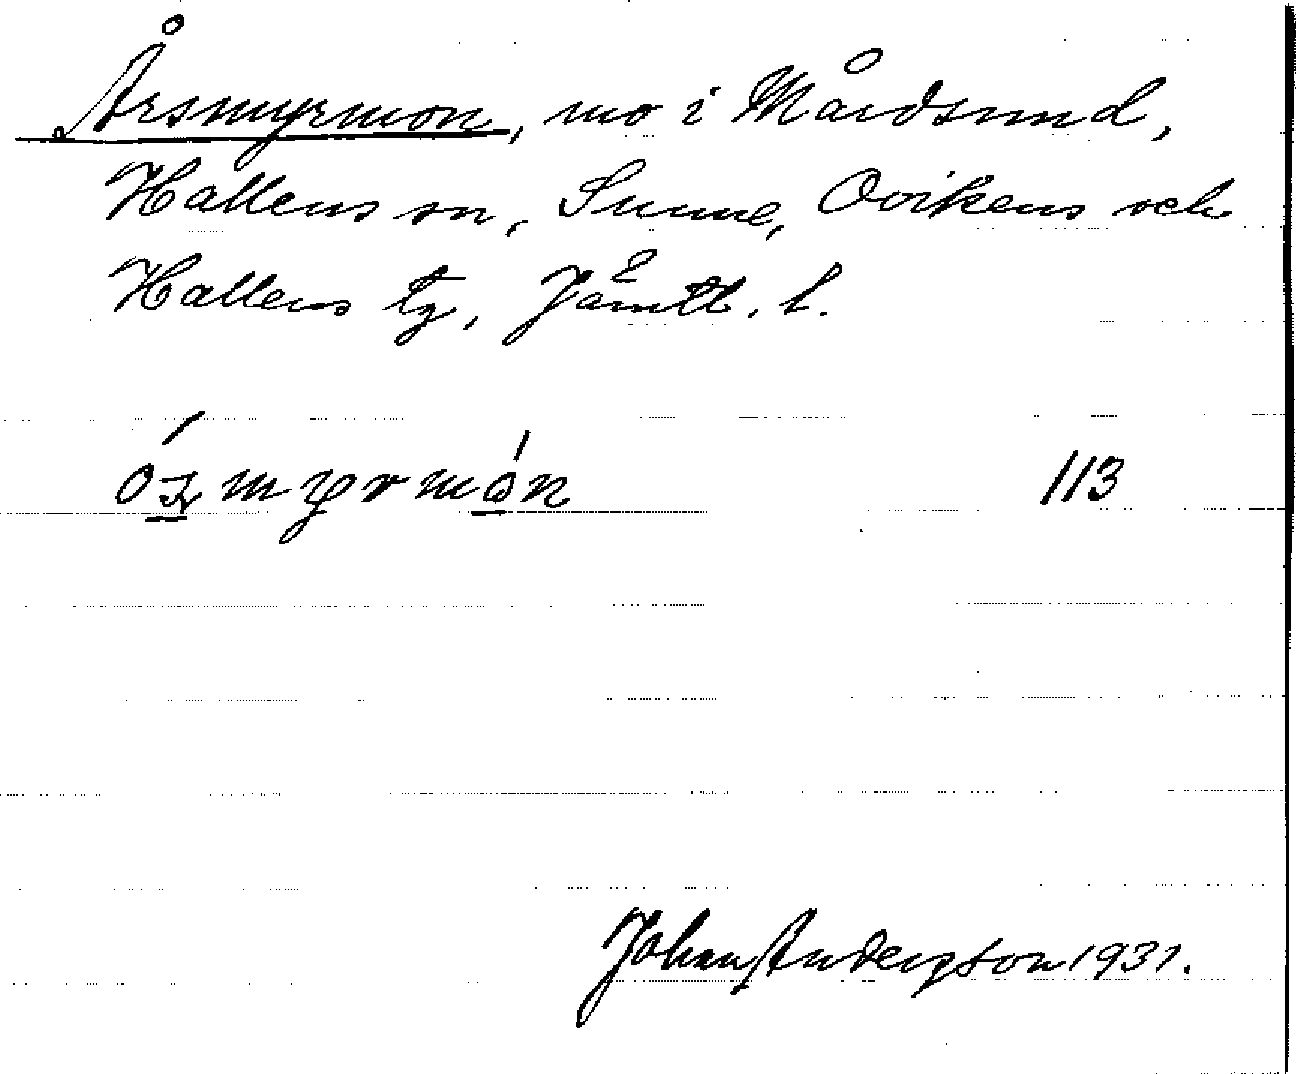 Årsmyrmon, mo i Mårdsund,
Hallens sn, Sunne, Ovikens och
Hallens tg, Jämtl. l.
113
Johan Anderson 1931.